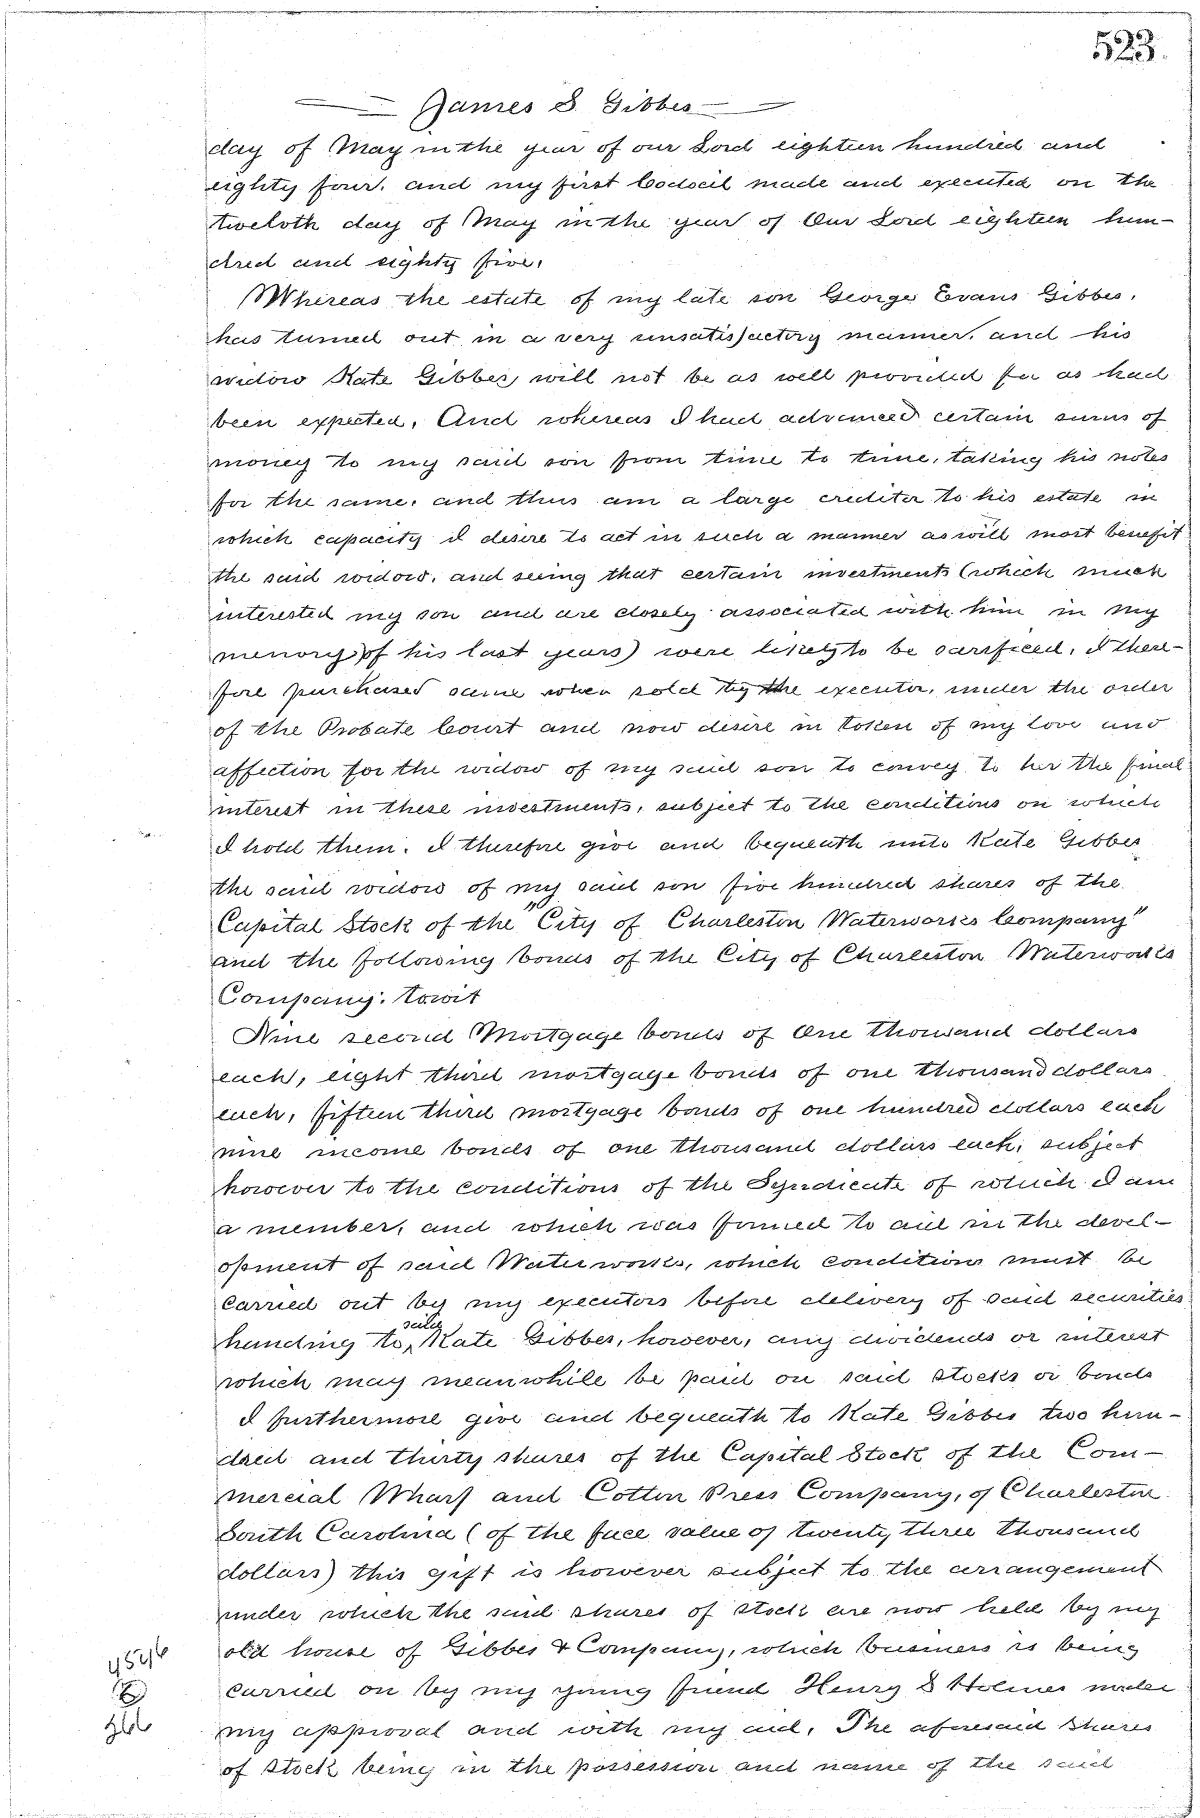 523.
James S. Gibbes
day of May in the year of our Lord eighteen hundred and
eighty four, and my first Codocil made and executed on the
twelvth day of May in the year of Our Lord eighteen hun-
dred and eighty five.
Whereas the estate of my late son George Evans Gibbes,
has turned out in a very unsatisfactory manner, and his
widow Kate Gibbes will not be as well provided for as had
been expected. And whereas I had advanced certain sums of
money to my said son from time to time, taking his notes
for the same, and thus am a large creditor to his estate in
which capacity I desire to act in such a manner as will most benefit
the said widow, and seeing that certain investments (which much
interested my son and are closely associated with him in my
memory of his last years) were likely to be sacrificed, I there-
fore purchased same when sold by the executor, under the order
of the Probate Court and now desire in token of my love and
affection for the widow of my said son to convey to her the final
interest in these investments, subject to the conditions on which
I hold them. I therefore give and bequeath unto Kate Gibbes
the said widow of my said son five hundred shares of the
Capital Stock of the "City of Charleston Waterworks Company"
and the following bonds of the City of Charleston Waterworks
Company: towit
Nine second Mortgage bonds of One thousand dollars
each, eight third mortgage bonds of one thousand dollars
each, fifteen third mortgage bonds of one hundred dollars each
nine income bonds of one thousand dollars each, subject
however to the conditions of the Syndicate of which I am
a member, and which was formed to aid in the devel-
opment of said Waterworks, which conditions must be
carried out by my executors before delivery of said securities
handing to said Kate Gibbes, however, any dividends or interest
which may meanwhile be paid on said stocks or bonds
I furthermore give and bequeath to Kate Gibbes two hun-
dred and thirty shares of the Capital Stock of the Com-
mercial Wharf and Cotton Press Company, of Charleston
South Carolina (of the face value of twenty three thousand
dollars) this gift is however subject to the arrangement
under which the said shares of stock are now held by my
old house of Gibbes & Company, which business is being
carried on by my young friend Henry S Holmes under
my approval and with my aid. The aforesaid shares
of stock being in the possession and name of the said